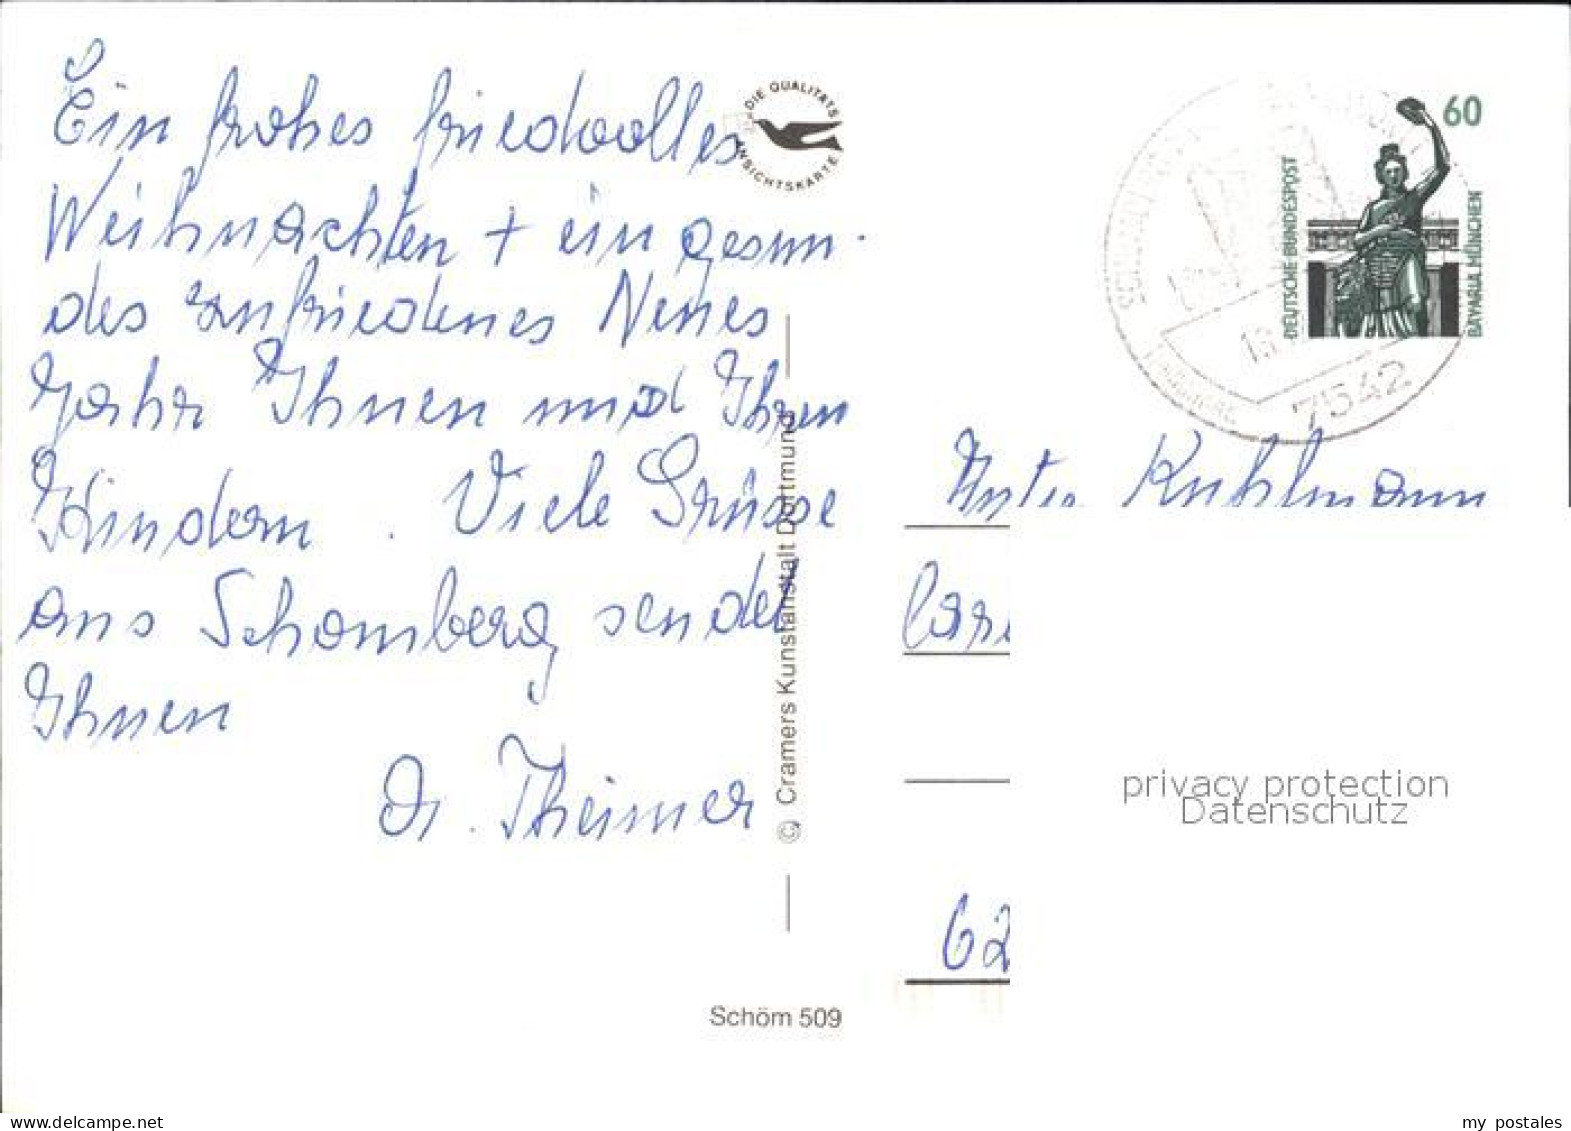 Ein frohes friedvolles
Weihnachten + ein gesun-
des zufriedenes Neues
Jahr Ihnen und Ihren
Kindern. Viele Grüsse
aus Schömberg sendet
Ihnen
Dr. Theimer
DIE QUALITÄTS
ANSICHTSKARTE
© Cramers Kunstanstalt Dortmund
Schöm 509
60
DEUTSCHE BUNDESPOST
BAVARIA MÜNCHEN
7542
Kuhlmann
62
privacy protection
Datenschutz
my postales